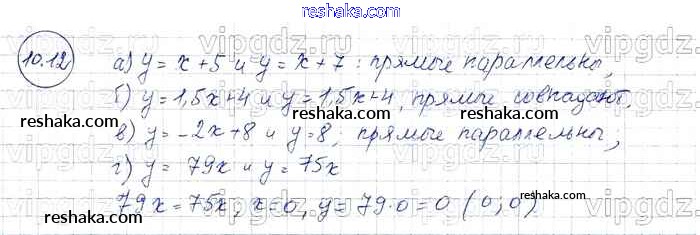 reshaka.com
10.12 а) y = x + 5 и y = x + 7 : прямые параллельны,
б) y = 1,5x + 4 и y = 1,5x + 4, прямые совпадают,
в) y = -2x + 8 и y = 8; прямые параллельны,
г) y = 79x и y = 75x
79x = 75x, x = 0, y = 79·0 = 0 (0; 0)
reshaka.com
reshaka.com
reshaka.com
reshaka.com